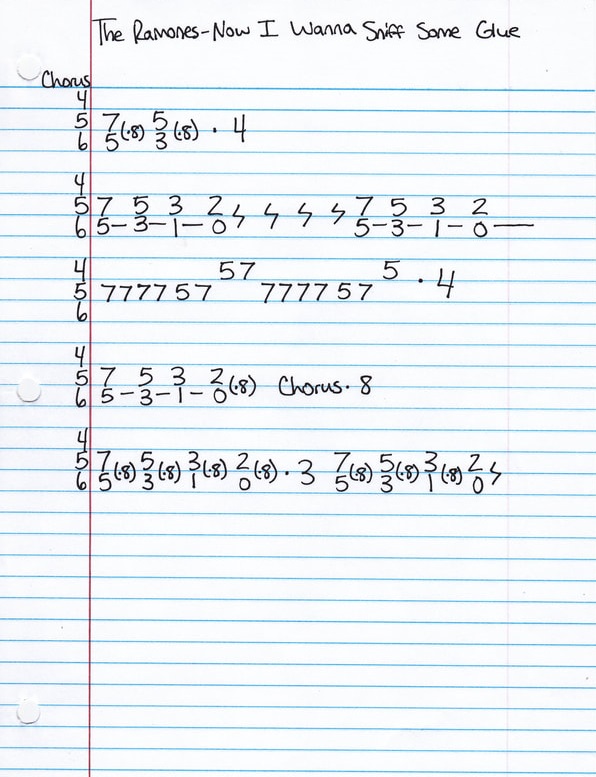 The Ramones-Now I Wanna Sniff Some Glue
Chorus
4
5 7 (·8) 5 (·8) · 4
6 5 3
4
5 7 5 3 2 ϟ ϟ ϟ ϟ 7 5 3 2
6 5-3-1-0 5-3-1-0—
4 57 5 · 4
5 777757 777757
6
4
5 7 5 3 2 (·8) Chorus · 8
6 5-3-1-0
4
5 7 (·8) 5 (·8) 3 (·8) 2 (·8) · 3 7 (·8) 5 (·8) 3 (·8) 2 ϟ
6 5 3 1 0 5 3 1 0